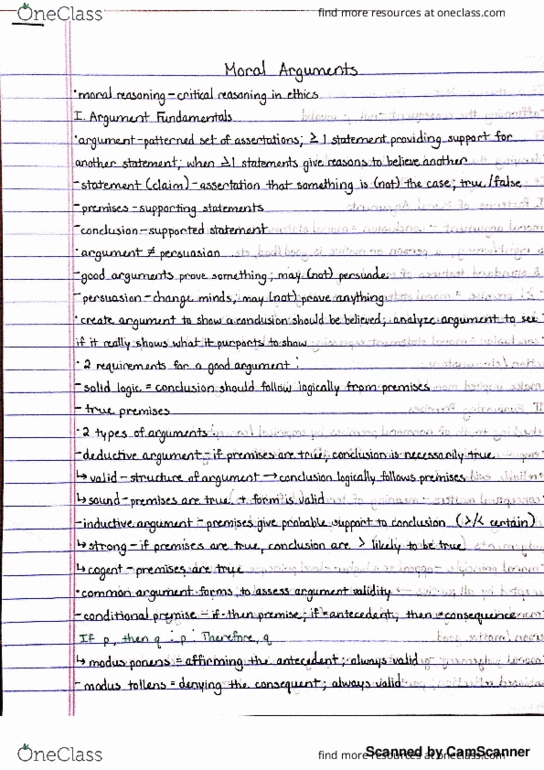 OneClass find more resources at oneclass.com
Moral Arguments
· moral reasoning - critical reasoning in ethics
I. Argument Fundamentals
· argument - patterned set of assertations; ≥ 1 statement providing support for
another statement; when ≥1 statements give reasons to believe another
- statement (claim) - assertation that something is (not) the case; true/false
- premises - supporting statements
- conclusion - supported statement
· argument ≠ persuasion
- good arguments prove something; may (not) persuade
- persuasion - change minds; may (not) prove anything
· create argument to show a conclusion should be believed; analyze argument to see
if it really shows what it purports to show
· 2 requirements for a good argument:
- solid logic = conclusion should follow logically from premises
- true premises
· 2 types of arguments
- deductive argument - if premises are true, conclusion is necessarily true
↳ valid - structure of argument → conclusion logically follows premises
↳ sound - premises are true + form is valid
- inductive argument - premises give probable support to conclusion (>/< certain)
↳ strong - if premises are true, conclusion are > likely to be true
↳ cogent - premises are true
· common argument forms to assess argument validity
- conditional premise - if-then premise; if = antecedent, then = consequence
If p, then q ; p ; Therefore, q
↳ modus ponens = affirming the antecedent; always valid
- modus tollens = denying the consequent; always valid
OneClass find more resources at oneclass.com
Scanned by CamScanner